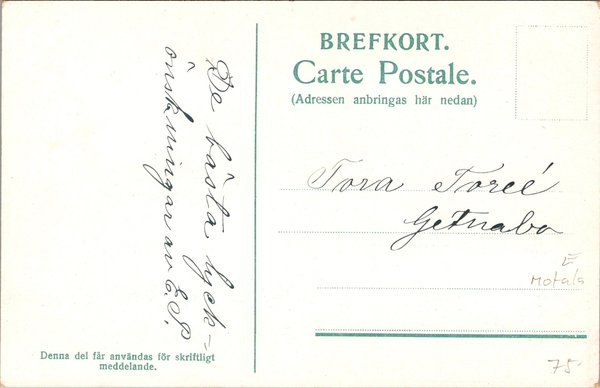 De bästa lyck-
önskningar av E.P.
Denna del får användas för skriftligt
meddelande.
BREFKORT.
Carte Postale.
(Adressen anbringas här nedan)
Tora Toreé
Getnabo
E
Motala
75-